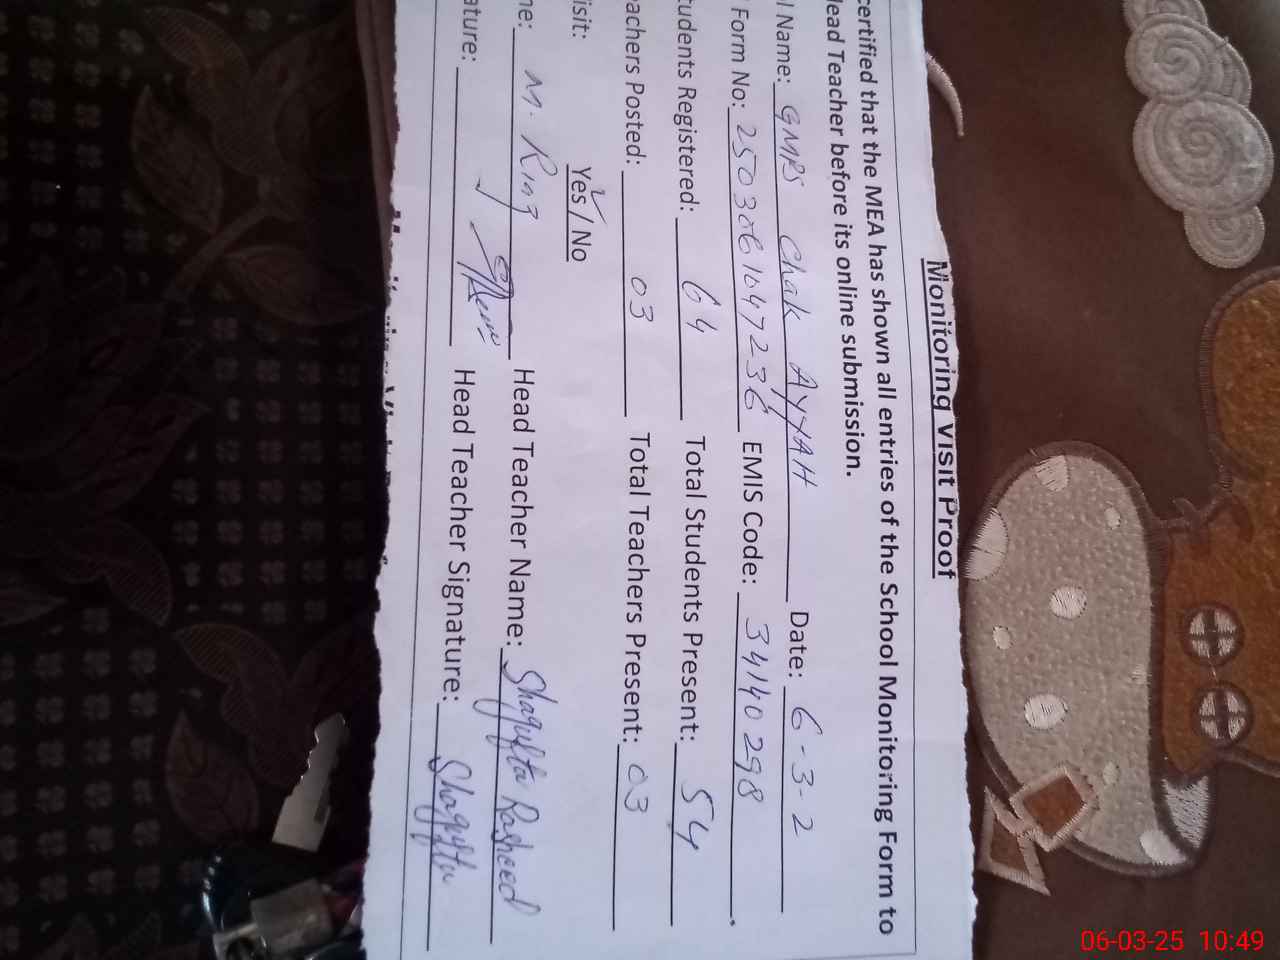 Monitoring Visit Proof
certified that the MEA has shown all entries of the School Monitoring Form to
Head Teacher before its online submission.
l Name: GMPS Chak AYYAH Date: 6-3-2
Form No: 2503061047236 EMIS Code: 34140298
tudents Registered: 64 Total Students Present: 54
eachers Posted: 03 Total Teachers Present: 03
isit: Yes / No
me: M. Riaz Head Teacher Name: Shagufta Rasheed
ature: Head Teacher Signature: Shagufta
06-03-25 10:49